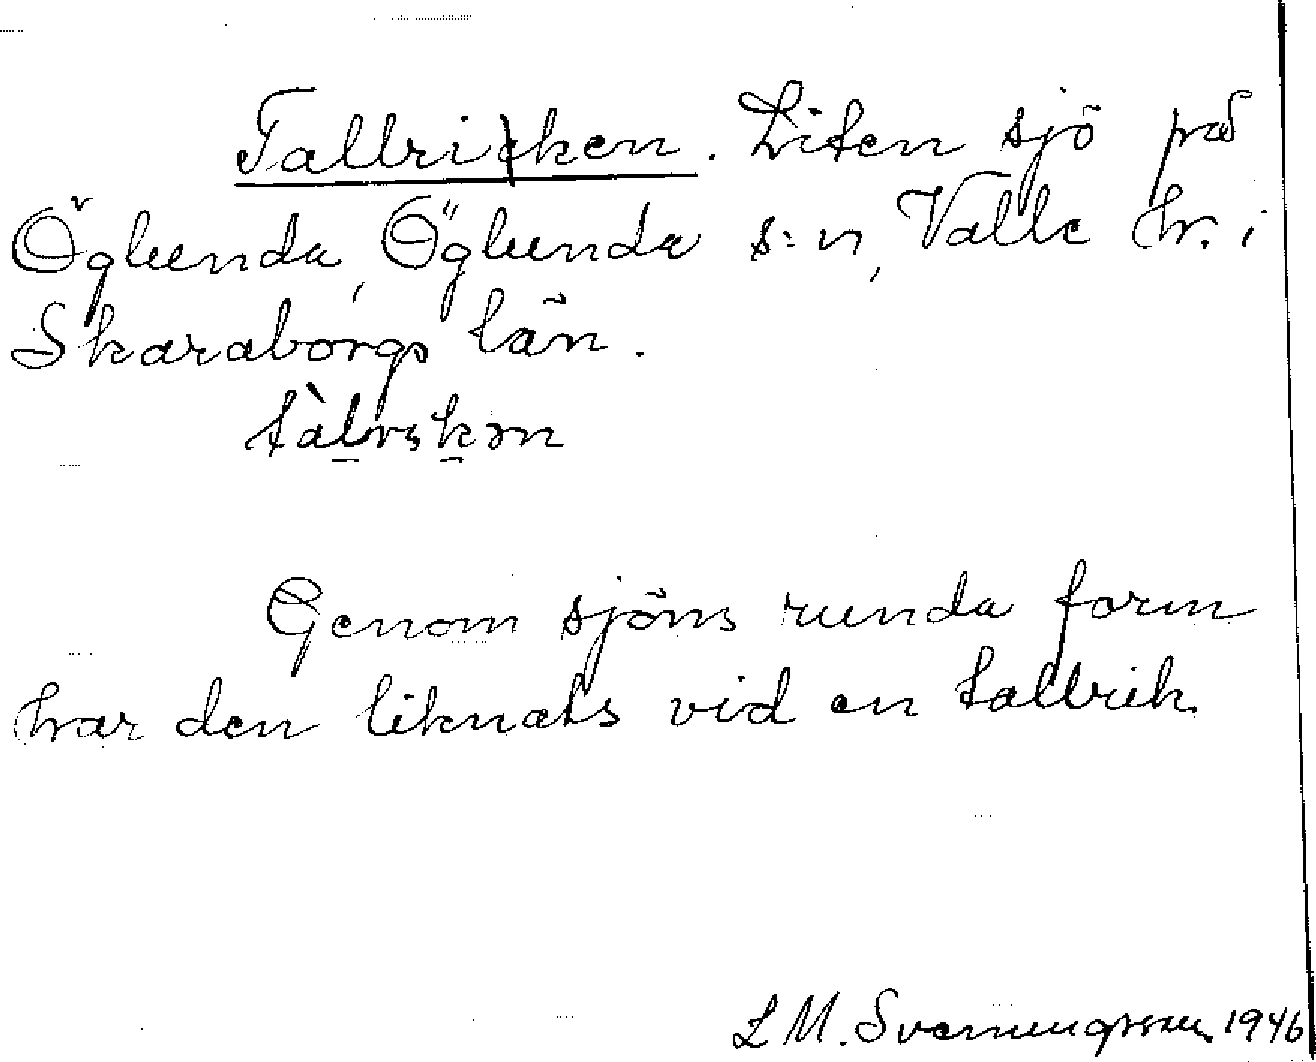 Tallricken. Liten sjö på
Öglunda, Öglunda s:n, Valle hr. i
Skaraborgs län.
Genom sjöns runda form
har den liknats vid en tallrik.
L M. Svenningsson 1946